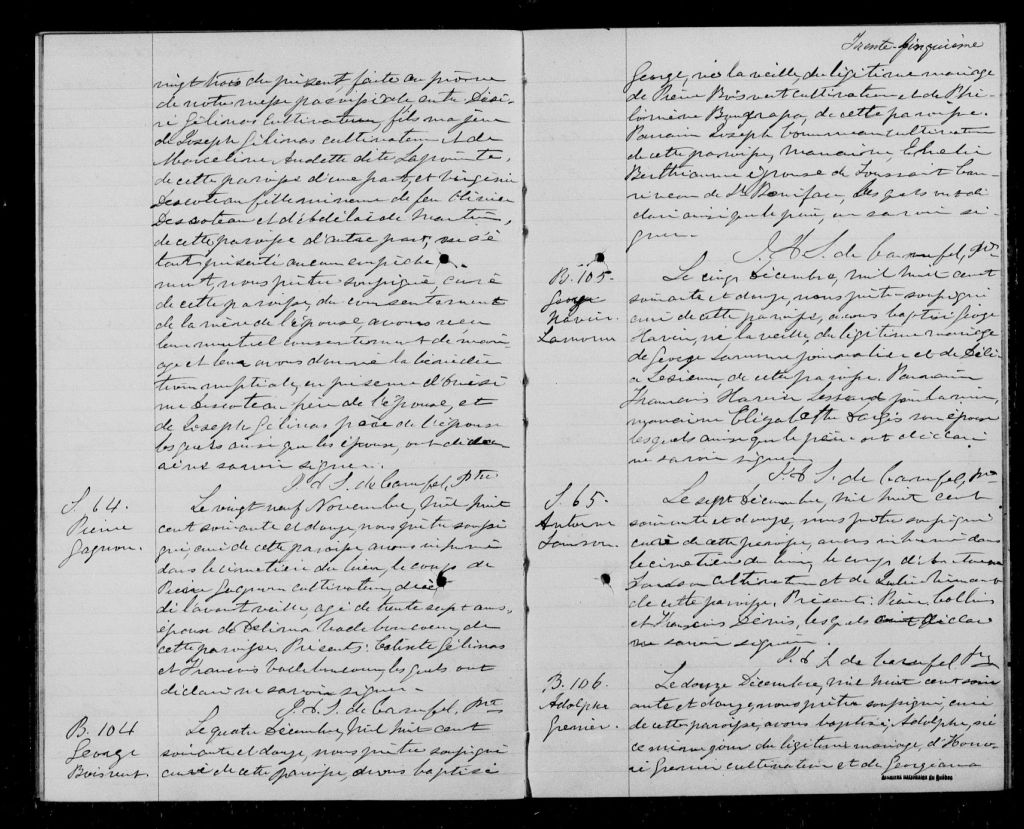 vingt trois du présent faite au prône
de notre messe paroissiale entre Dési-
ré Gélinas cultivateur, fils majeur
de Joseph Gélinas cultivateur et de
Marceline Audette dite Lapointe,
de cette paroisse d'une part, et Virginie
Descoteau fille mineure de feu Olivier
Descoteau et d'Adélaïde Martin,
de cette paroisse d'autre part, ne s'é
tant présenté aucun empêche
ment, nous prêtre soussigné curé
de cette paroisse, du consentement
de la mère de l'épouse, avons reçu
leur mutuel consentement de mari-
age et leur avons donné la bénédic
tion nuptiale, en présence d'Onési
me Descoteau frère de l'épouse, et
de Joseph Gélinas père de l'époux
lesquels ainsi que les époux, ont déclaré
ne savoir signer.
J. A. S. de Carufel, Ptre
S. 64.
Pierre
Gagnon.
Le vingt neuf Novembre, mil huit
cent soixante et douze, nous prêtre soussi
gné, curé de cette paroisse, avons inhumé
dans le cimetière du lieu, le corps de
Pierre Gagnon cultivateur, décé
dé l'avant veille, agé de trente sept ans,
époux de Délima Vadeboncoeur, de
cette paroisse. Présents: Calixte Gélinas
et François Vadeboncoeur, lesquels ont
déclaré ne savoir signer.
J. A. S. de Carufel, Ptre
B. 104
George
Boisvert.
Le quatre Décembre, mil huit cent
soixante et douze, nous prêtre soussigné
curé de cette paroisse, avons baptisé
Trente-Cinquième
George, né la veille, du légitime mariage
de Pierre Boisvert cultivateur et de Phi-
lomène de cette paroisse.
Parrain Joseph cultivateur
de cette paroisse, marraine,
Berthiaume épouse de Toussaint
de St. Boniface, lesquels ont dé
claré ainsi que le père, ne savoir si-
gner.
J. A. S. de Carufel, Ptre
B. 105.
George
Xavier
Lamorre
Le cinq Décembre, mil huit cent
soixante et douze, nous prêtre soussigné
curé de cette paroisse, avons baptisé George
Xavier, né la veille, du légitime mariage
de George journalier et de Déli
a Lesieur, de cette paroisse. Parrain
François Xavier
marraine Elizabeth son épouse
lesquels ainsi que le père ont déclaré
ne savoir signer.
J. A. S. de Carufel, Ptre
S. 65.
Antoine
Le sept Décembre, mil huit cent
soixante et douze, nous prêtre soussigné
curé de cette paroisse, avons inhumé dans
le cimetière du lieu, le corps d'Antoine
cultivateur et de Julie
de cette paroisse. Présents: Pierre
et François Denis, lesquels ont déclaré
ne savoir signer.
J. A. S. de Carufel Ptre
B. 106.
Adolphe
Grenier.
Le douze Décembre, mil huit cent soix
ante et douze, nous prêtre soussigné, curé
de cette paroisse, avons baptisé, Adolphe, né
ce même jour du légitime mariage, d'Hono
ré Grenier cultivateur et de Georgiana
Archives nationales du Québec